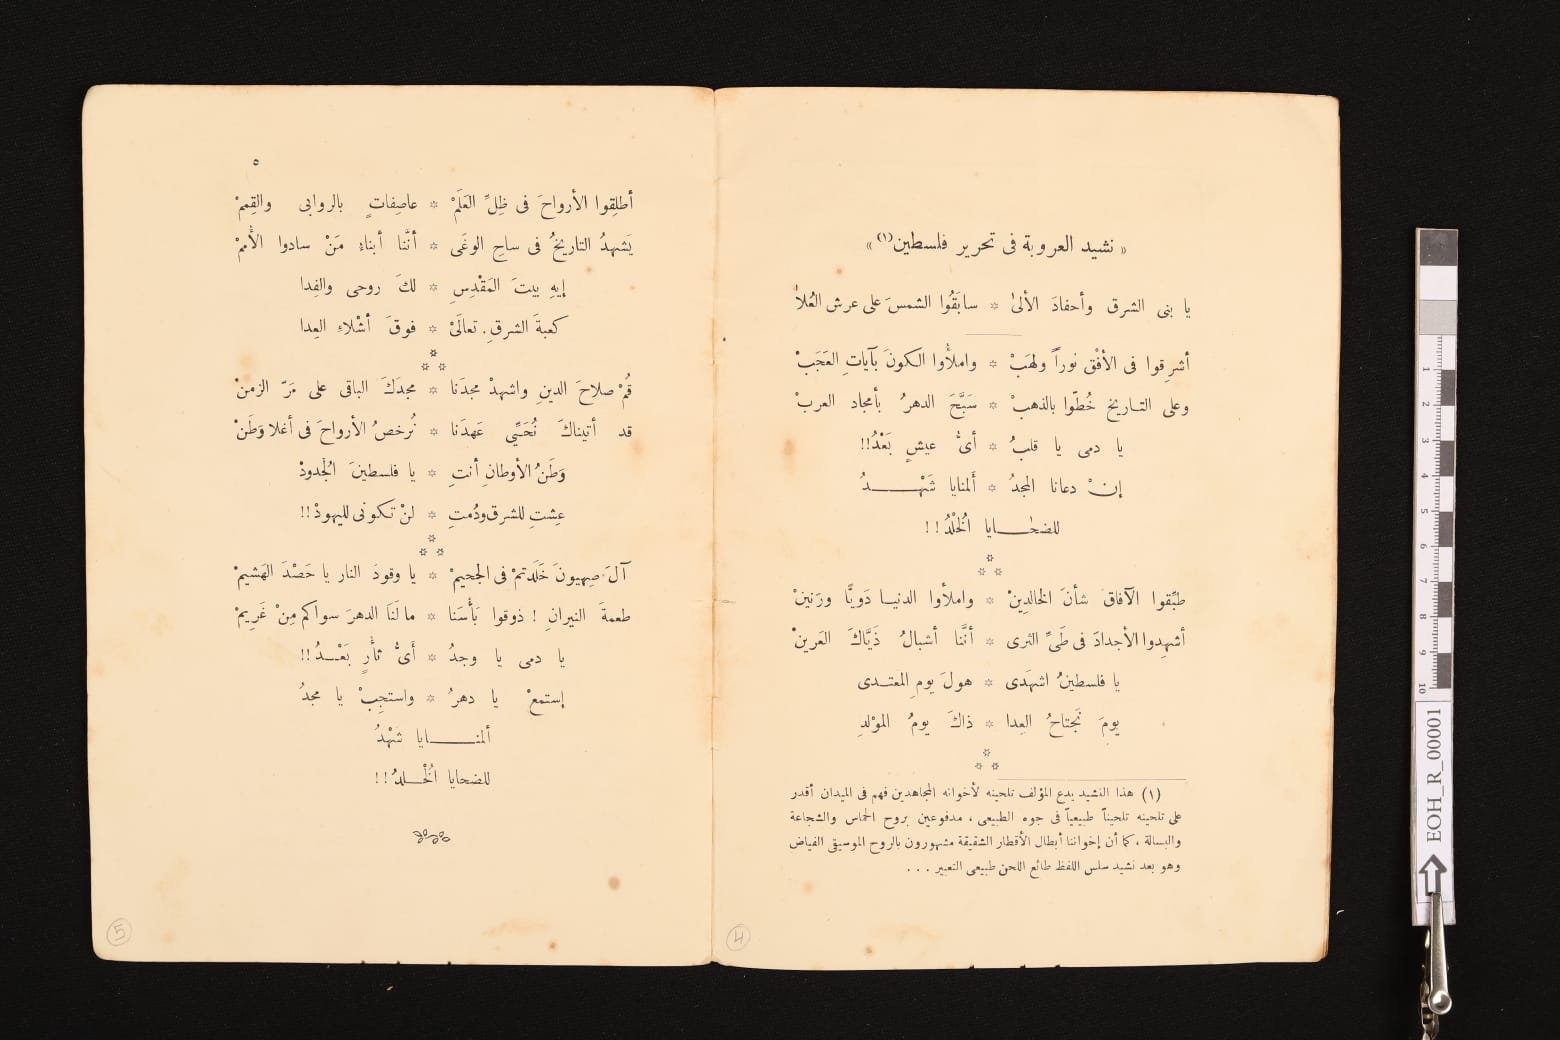 « نشيد العروبة فى تحرير فلسطين(١) »
يا بنى الشرق وأحفادَ الألىٰ * سابَقُوا الشمسَ على عرش العُلا
أشرِقوا فى الأفْق نوراً ولهَبْ * واملأوا الكونَ بآياتِ العَجَبْ
وعلى التـاريخ خُطّوا بالذهبْ * سَبَّحَ الدهرُ بأمجاد العربْ
يا دمى يا قلبُ * أىُّ عيشٍ بَعْدُ!!
إنْ دعانا المجدُ * ألمنايا شَهْـــدُ
للضحـــايا الُخلْدُ!!
* * *
طبِّقوا الآفاقَ شأنَ الخالدِينْ * واملأوا الدنيـا دَويًّا ورَنينْ
أشهِدوا الأجدادَ فى طَىِّ الثرى * أنَّنا أشبالُ ذَيَّاكَ العَرينْ
يا فلسطينُ اشهَدى * هولَ يومِ المعتـدى
يومَ نَجتاحُ العِدا * ذاكَ يومُ الموْلدِ
* * *
(١) هذا النشيد يدع المؤلف تلحينه لأخوانه المجاهدين فهم فى الميدان أقدر
على تلحينه تلحيناً طبيعياً فى جوه الطبيعى ، مدفوعين بروح الحماس والشجاعة
والبسالة ، كما أن إخواننا أبطال الأقطار الشقيقة مشهورون بالروح الموسيقى الفياض
وهو بعد نشيد سلس اللفظ طائع اللحن طبيعى التعبير . . .
4
٥
أطلِقوا الأرواحَ فى ظِلِّ العَلَمْ * عاصِفاتٍ بالروابى والقِممْ
يَشهدُ التاريخُ فى ساحِ الوغَى * أنَّنا أبناءِ مَنْ سادوا الأُممْ
إيهِ بيتَ المَقْدِسِ * لكَ روحى والفِدا
كعبةَ الشرقِ. تعالَىْ * فوقَ أشْلاءِ العِدا
* * *
قُمْ صلاحَ الدينِ واشهدْ مجدَنا * مجدَكَ الباقى على مَرّ الزمنْ
قد أتيناكَ نُحَيِّي عَهدَنا * نُرخصُ الأرواحَ فى أغلا وَطَنْ
وَطَنُ الأوطانِ أنتِ * يا فلسطينَ الجُدودْ
عِشتِ للشرق ودُمتِ * لنْ تكونى لليهودْ!!
* * *
آلَ صِهيونَ خَلَدتمْ فى الجحيمْ * يا وقودَ النار يا حَصْدَ الهَشيمْ
طعمةَ النيرانِ ! ذوقوا بَأْسَنا * ما لَنَا الدهرَ سواكم مِنْ غَرِيمْ
يا دمى يا وجدُ * أىُّ ثأْرٍ بَعْـــدُ!!
إستمعْ يا دهرُ * واستجِبْ يا مجدُ
ألمنـــــايا شَهْدُ
للضحايا الُخْـــلدُ!!
5
1
2
3
4
5
6
7
8
9
10
EOH_R_00001